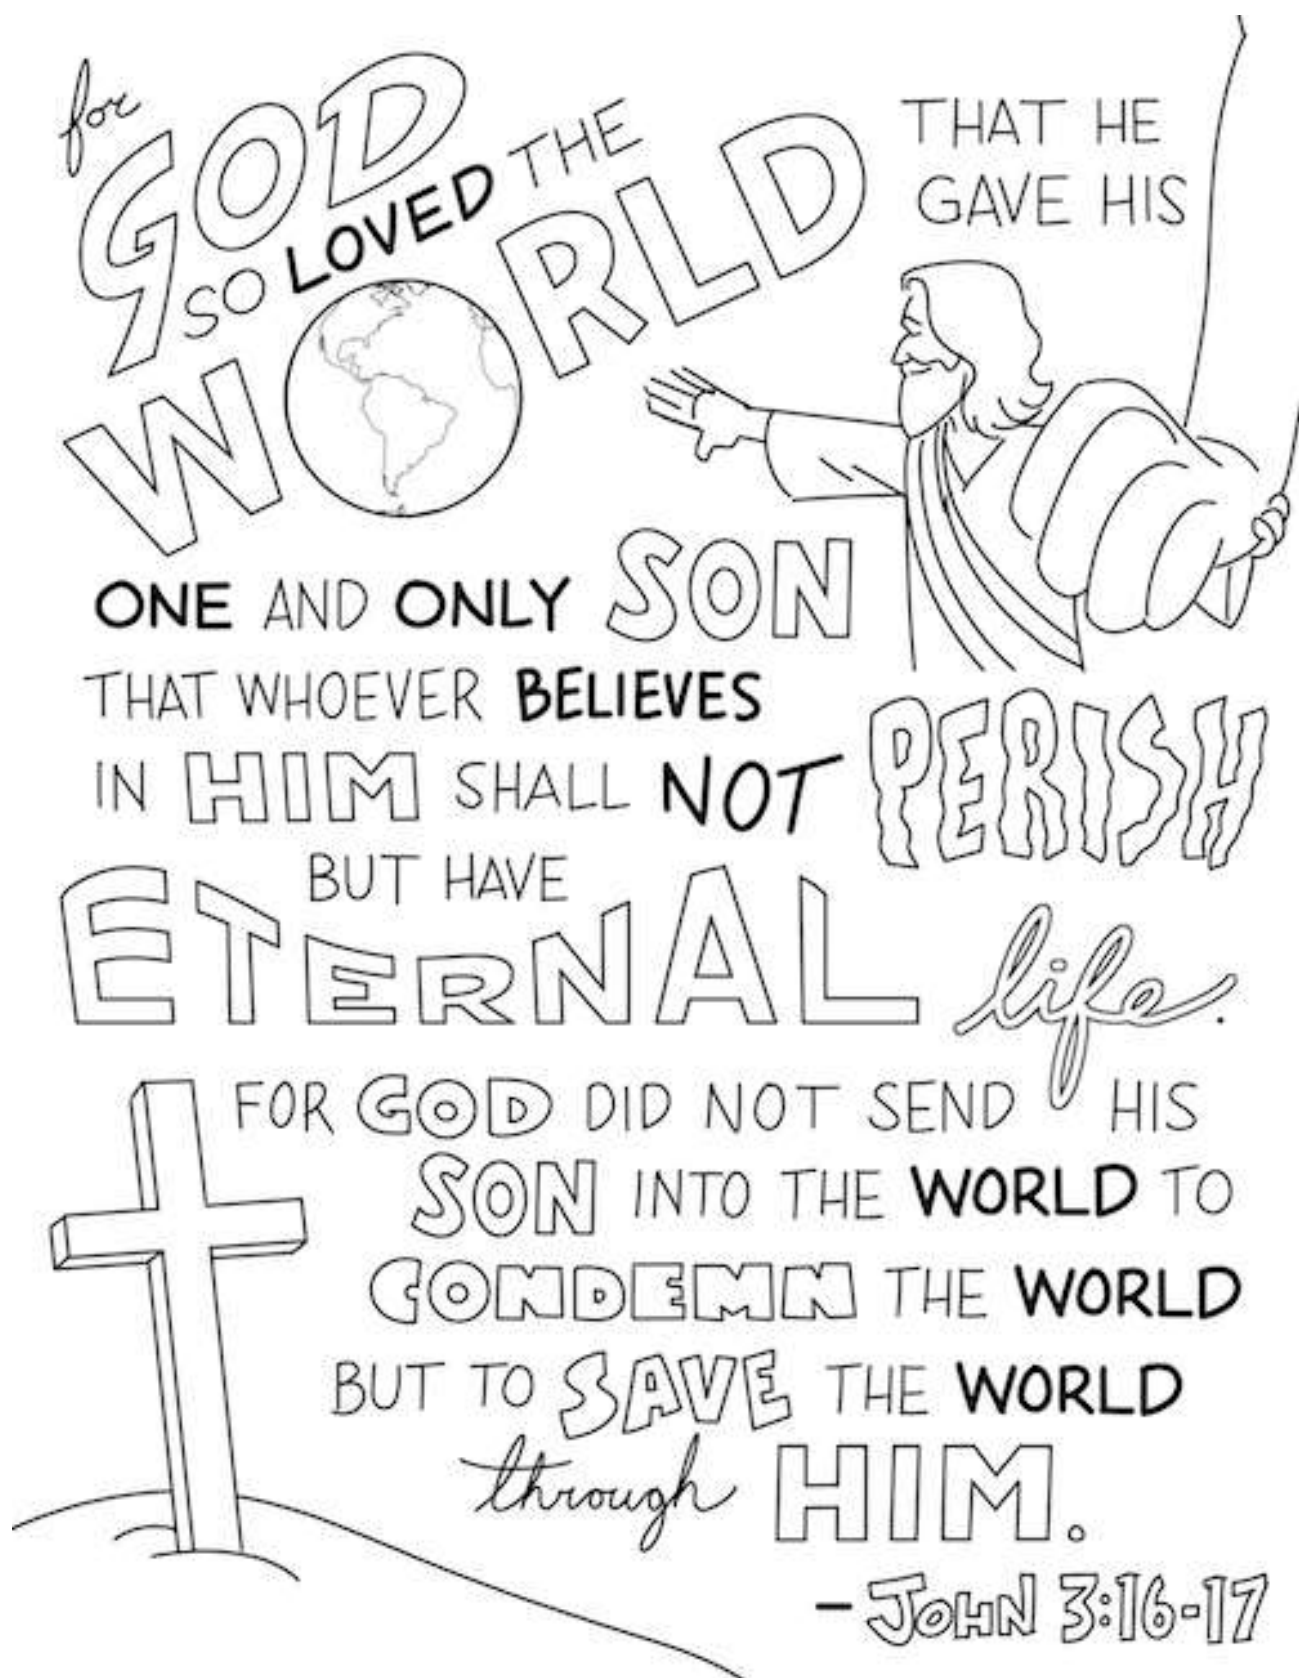 for
GOD
SO LOVED THE
WORLD
THAT HE
GAVE HIS
ONE AND ONLY SON
THAT WHOEVER BELIEVES
IN HIM SHALL NOT PERISH
BUT HAVE
ETERNAL life.
FOR GOD DID NOT SEND HIS
SON INTO THE WORLD TO
CONDEMN THE WORLD
BUT TO SAVE THE WORLD
through HIM.
- JOHN 3:16-17